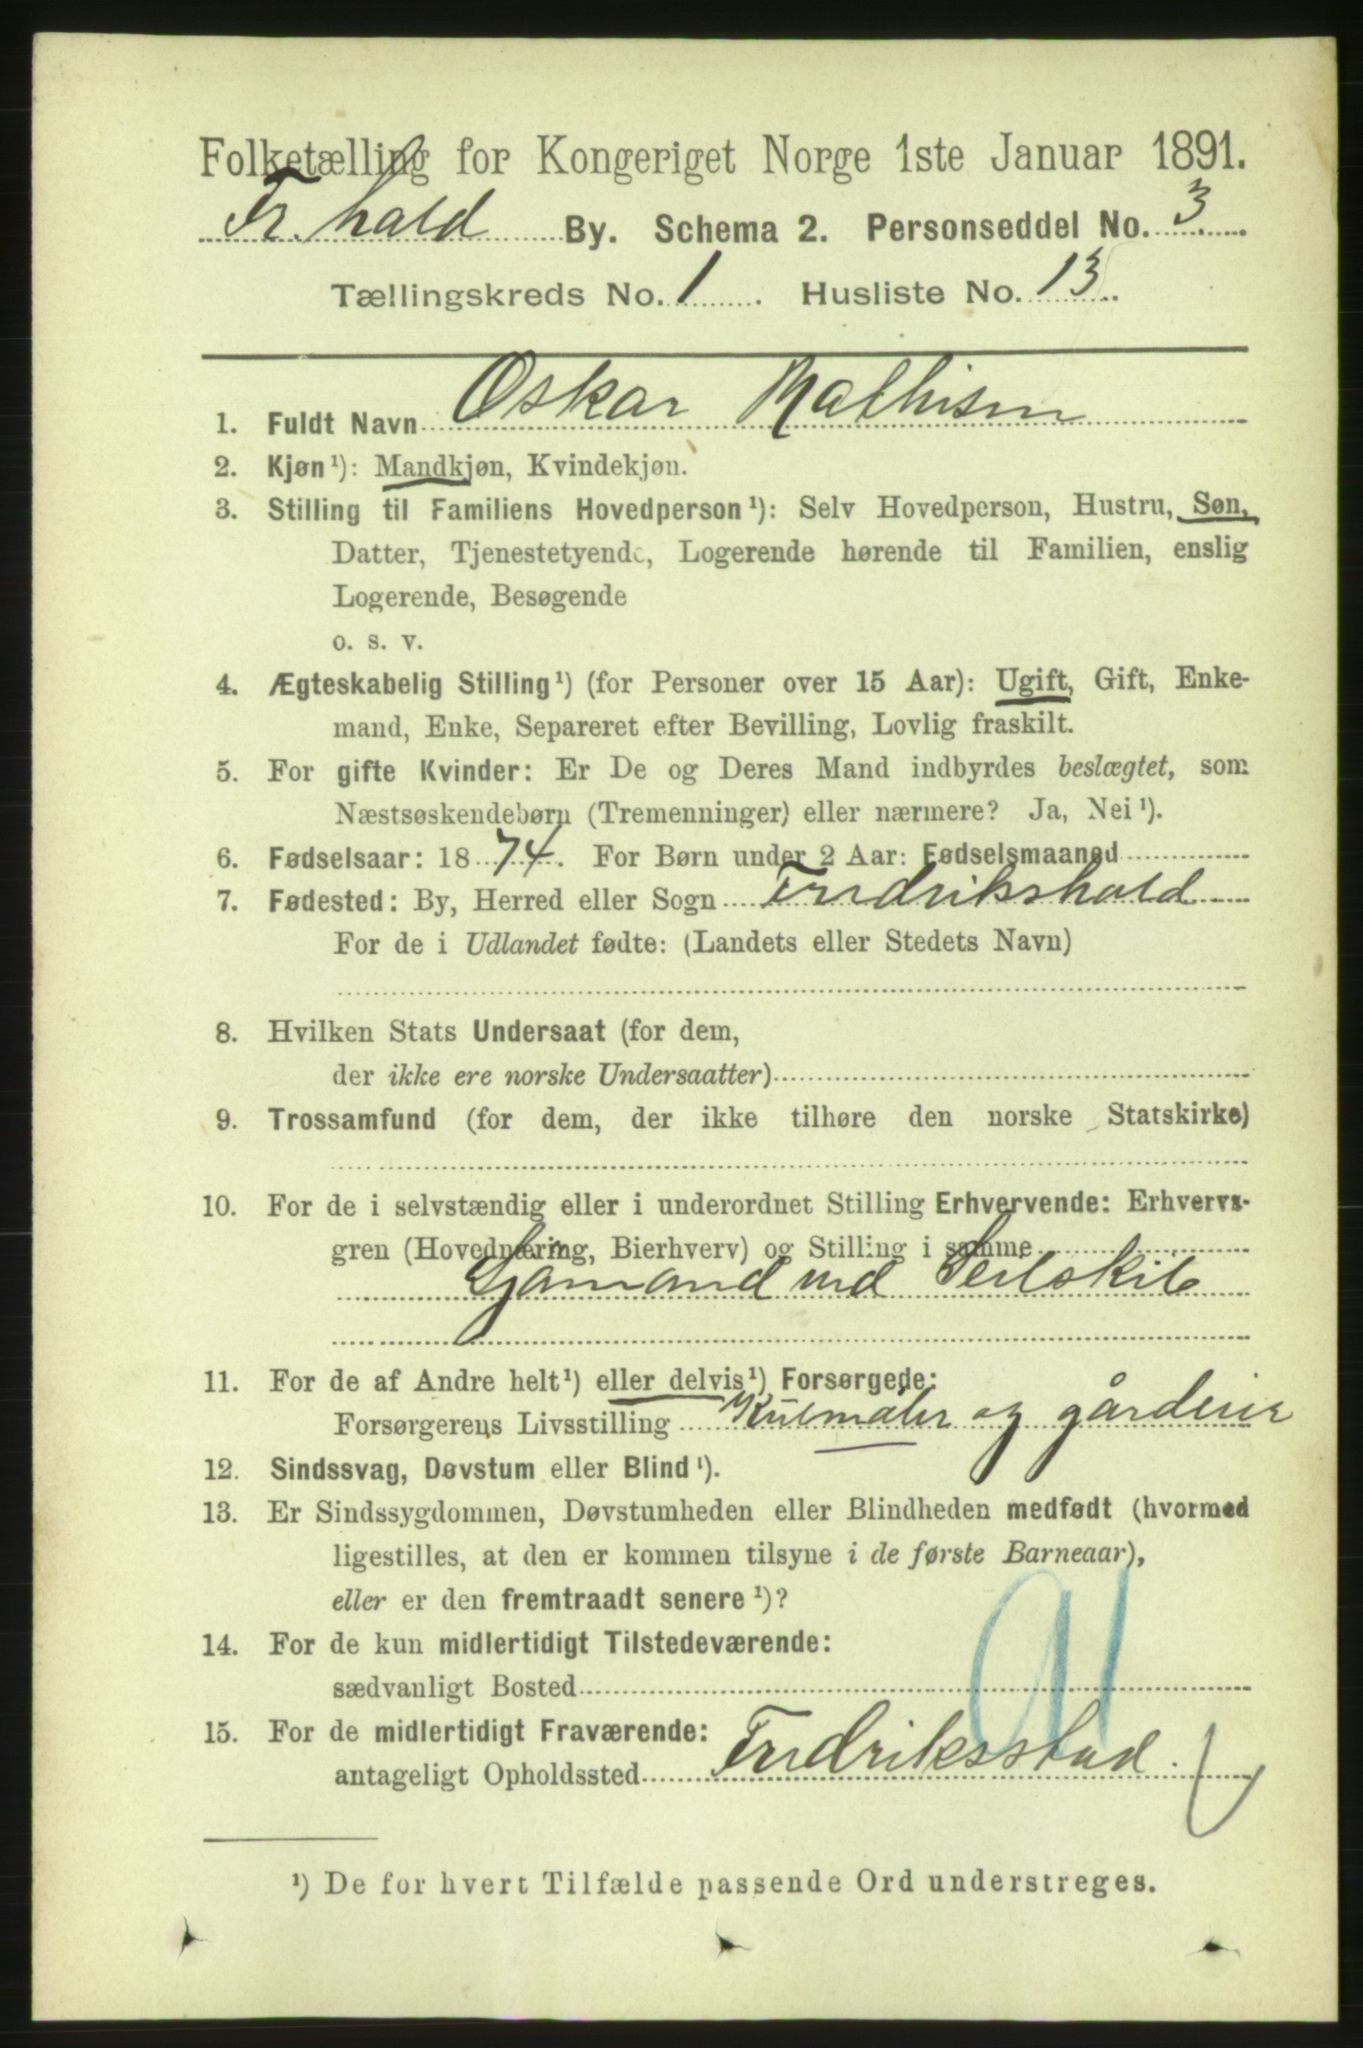 Folketælling for Kongeriget Norge 1ste Januar 1891.
Fr.hald By. Schema 2. Personseddel No. 3
Tællingskreds No. 1. Husliste No. 13.
1. Fuldt Navn Oskar Mathisen
2. Kjøn¹): Mandkjøn, Kvindekjøn.
3. Stilling til Familiens Hovedperson¹): Selv Hovedperson, Hustru, Søn,
Datter, Tjenestetyende, Logerende hørende til Familien, enslig
Logerende, Besøgende
o. s. v.
4. Ægteskabelig Stilling¹) (for Personer over 15 Aar): Ugift, Gift, Enke-
mand, Enke, Separeret efter Bevilling, Lovlig fraskilt.
5. For gifte Kvinder: Er De og Deres Mand indbyrdes beslægtet, som
Næstsøskendebørn (Tremenninger) eller nærmere? Ja, Nei¹).
6. Fødselsaar: 1874. For Børn under 2 Aar: Fødselsmaaned
7. Fødested: By, Herred eller Sogn Fredrikshald
For de i Udlandet fødte: (Landets eller Stedets Navn)
8. Hvilken Stats Undersaat (for dem,
der ikke ere norske Undersaatter)
9. Trossamfund (for dem, der ikke tilhøre den norske Statskirke)
10. For de i selvstændig eller i underordnet Stilling Erhvervende: Erhvervs-
gren (Hovednæring, Bierhverv) og Stilling i samme
Sjømand med Seilskib
11. For de af Andre helt¹) eller delvis¹) Forsørgede:
Forsørgerens Livsstilling Kulmåler og gårdeier
12. Sindssvag, Døvstum eller Blind¹).
13. Er Sindssygdommen, Døvstumheden eller Blindheden medfødt (hvormed
ligestilles, at den er kommen tilsyne i de første Barneaar),
eller er den fremtraadt senere¹)?
14. For de kun midlertidigt Tilstedeværende:
sædvanligt Bosted
15. For de midlertidigt Fraværende:
antageligt Opholdssted Fredriksstad.
¹) De for hvert Tilfælde passende Ord understreges.